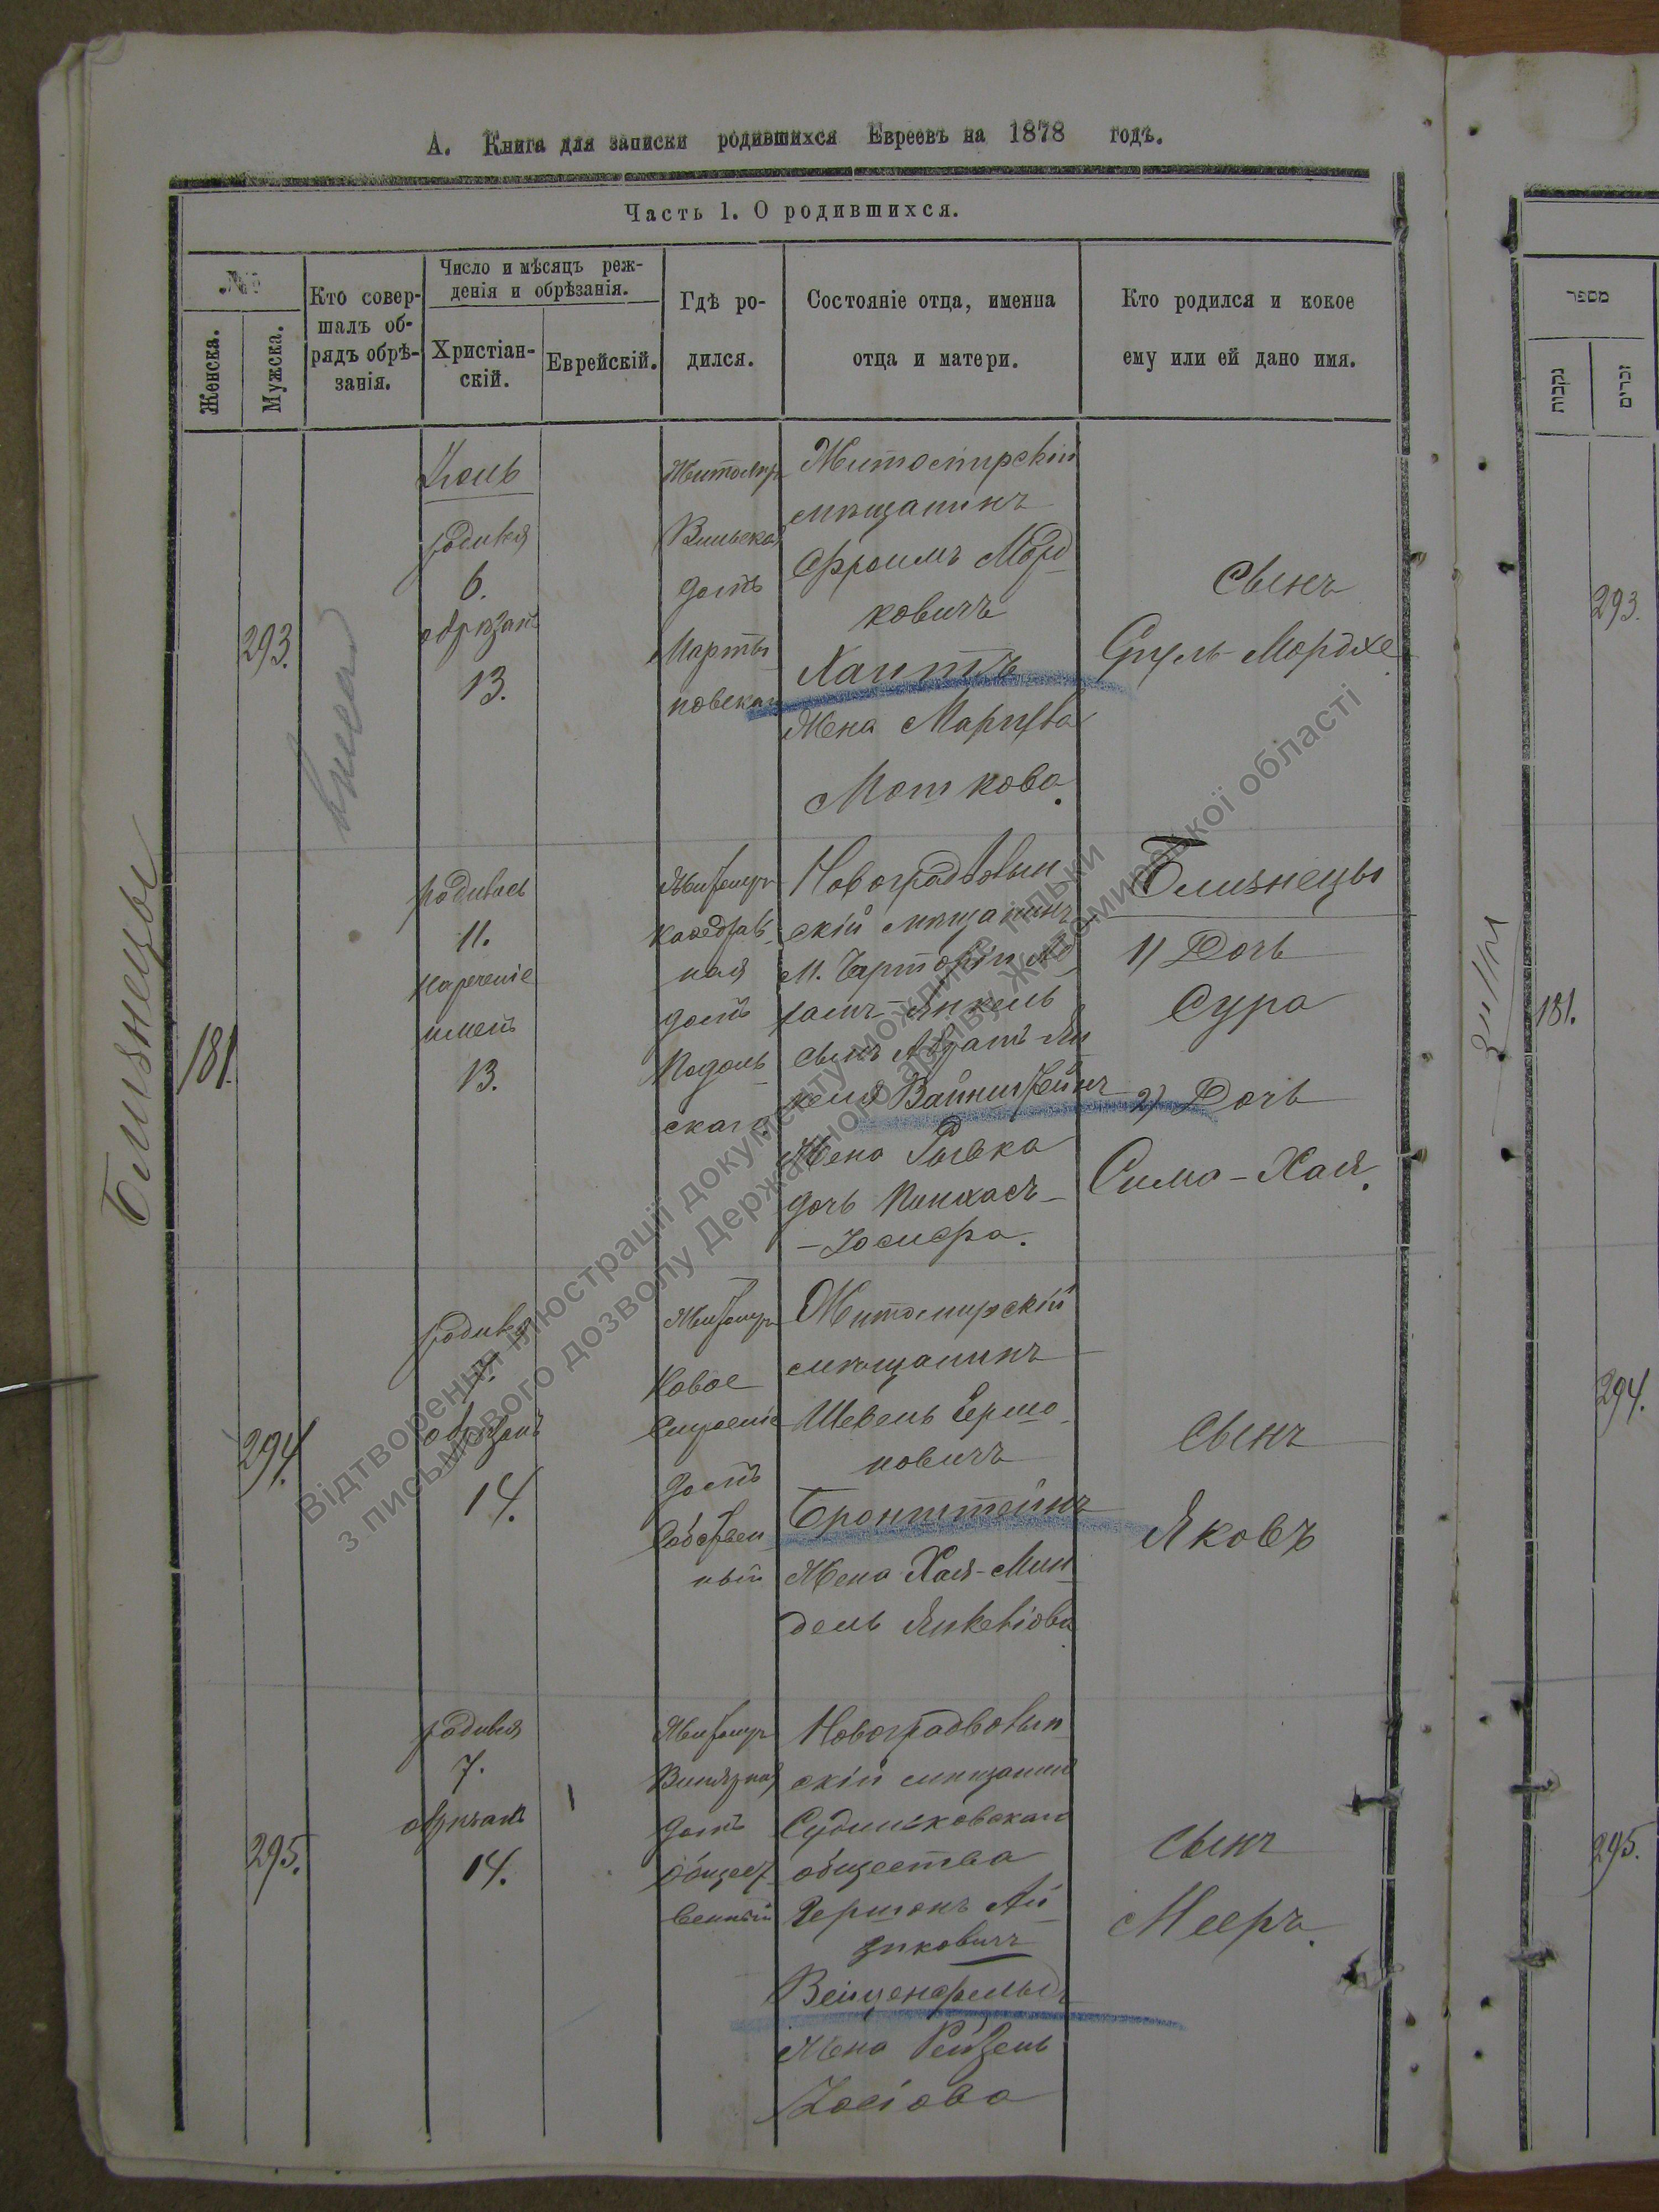 А. Книга для записки родившихся Евреевъ на 1878 годъ.
Часть 1. О родившихся.
№
Женска.
Мужска.
Кто совер-
шалъ об-
рядъ обрѣ-
занія.
Число и мѣсяцъ реж-
денія и обрѣзанія.
Христіан-
скій.
Еврейскій.
Гдѣ ро-
дился.
Состояніе отца, именна
отца и матери.
Кто родился и кокое
ему или ей дано имя.
293.
родился
6.
обрѣзанъ
13.
Житомиръ
домъ
Житомирскій
мѣщанинъ
Фроимъ Морд
ковичъ
Хаитъ
Жена
Моткова.
Сынъ
Сруль-Мордхе
Близнецы
181.
родились
11.
нареченіе
именъ
13.
Житомиръ
Каѳедраль
ная
домъ
Подоль
скаго
Новоградволын
скій мѣщанинъ
М. Чарторіи Ав
рамъ-Янкель
сынъ Аврамъ-Ян
келя Вайнштейнъ
Жена Ривка
дочь Пинхасъ-
-Іосифа.
Близнецы
1) Дочь
Сура
2) Дочь
Сима-Хая.
294.
родился
7.
обрѣзанъ
14.
Житомиръ
Новое
Строеніе
домъ
Собствен
ный
Житомирскій
мѣщанинъ
Шевель Гершо
новичъ
Бронштейнъ
Жена Хая-Мин
дель Янкеліова
Сынъ
Яковъ
295.
родился
7.
обрѣзанъ
14.
Житомиръ
домъ
Общест
венный
Новоградволын
скій мѣщанинъ
Судилковскаго
общества
Гершонъ Ай
зиковичъ
Вейценфельдъ
Жена Рейзель
Іосіова
Сынъ
Мееръ.
מספר
נקבות
זכרים
293.
181.
294.
295.
Відтворення ілюстрації документу можливе тільки
з письмового дозволу Державного архіву Житомирської області